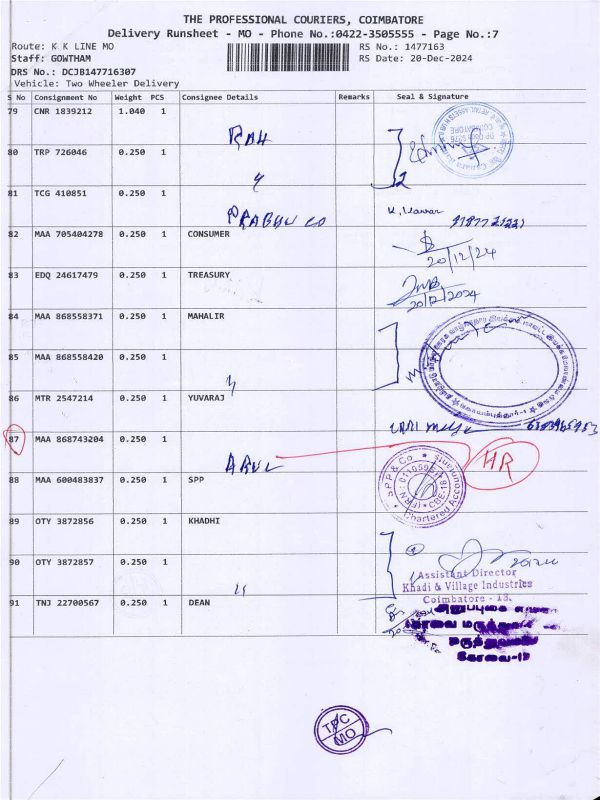 THE PROFESSIONAL COURIERS, COIMBATORE
Delivery Runsheet - MO - Phone No.:0422-3505555 - Page No.:7
Route: K K LINE MO
RS No.: 1477163
Staff: GOWTHAM
RS Date: 20-Dec-2024
DRS No.: DCJB147716307
Vehicle: Two Wheeler Delivery
S No Consignment No Weight PCS Consignee Details Remarks Seal & Signature
79 CNR 1839212 1.040 1
80 TRP 726046 0.250 1
81 TCG 410851 0.250 1 PRABHU CO
82 MAA 705404278 0.250 1 CONSUMER
20/12/24
83 EDQ 24617479 0.250 1 TREASURY
20/12/2024
84 MAA 868558371 0.250 1 MAHALIR
85 MAA 868558420 0.250 1
86 MTR 2547214 0.250 1 YUVARAJ
87 MAA 868743204 0.250 1 ARUL
HR
88 MAA 600483837 0.250 1 SPP
SPP & Co
Chartered Accountants
89 OTY 3872856 0.250 1 KHADHI
90 OTY 3872857 0.250 1
Assistant Director
Khadi & Village Industries
Coimbatore - 18.
91 TNJ 22700567 0.250 1 DEAN
TPC
MO